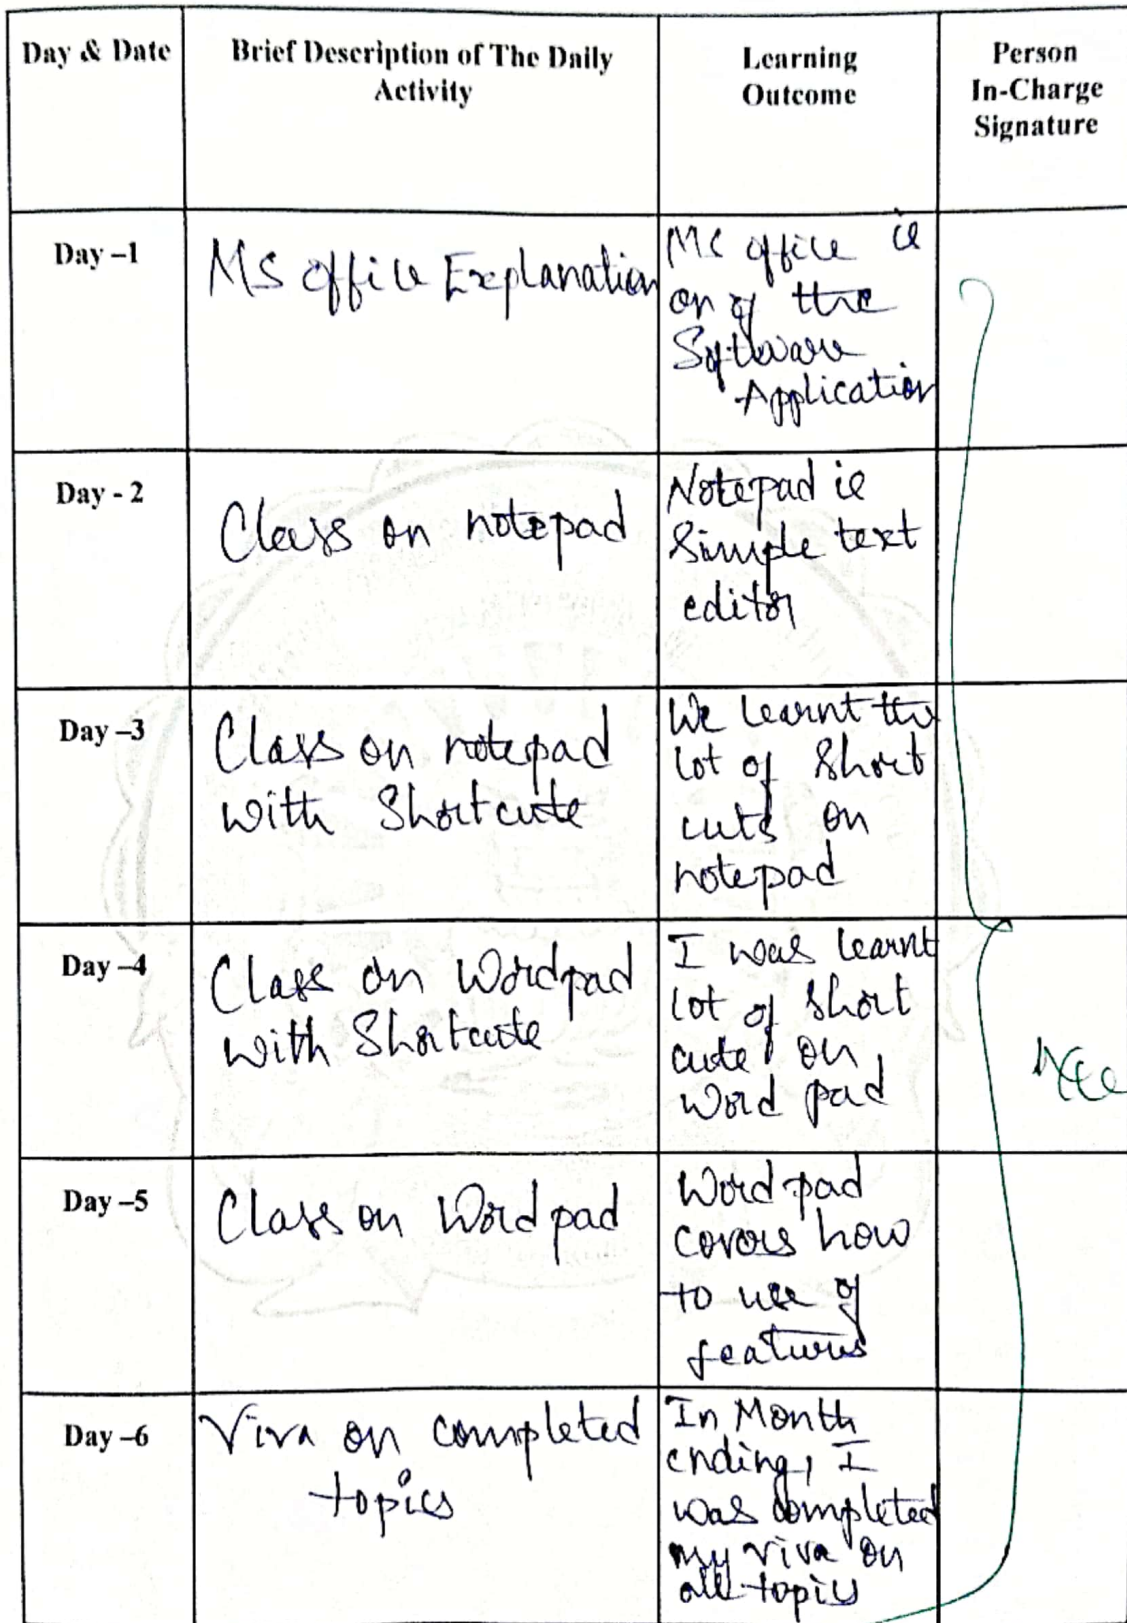 Day & Date
Brief Description of The Daily
Activity
Learning
Outcome
Person
In-Charge
Signature
Day –1
MS office Explanation
MS office is
on of the
Software
Application
Day - 2
Class on notepad
Notepad is
Simple text
editor
Day –3
Class on notepad
with Shortcuts
We learnt the
lot of Short
cuts on
notepad
Day –4
Class on Wordpad
with Shortcuts
I was learnt
lot of short
cuts on
word pad
Day –5
Class on Word pad
Word pad
covers how
to use of
features
Day –6
Viva on completed
topics
In Month
ending, I
was completed
my viva on
all topics